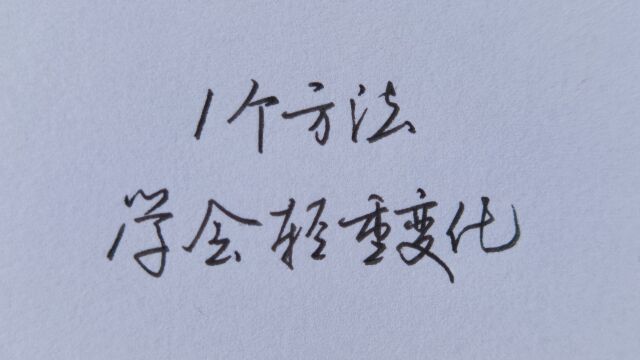 1个方法
学会轻重变化